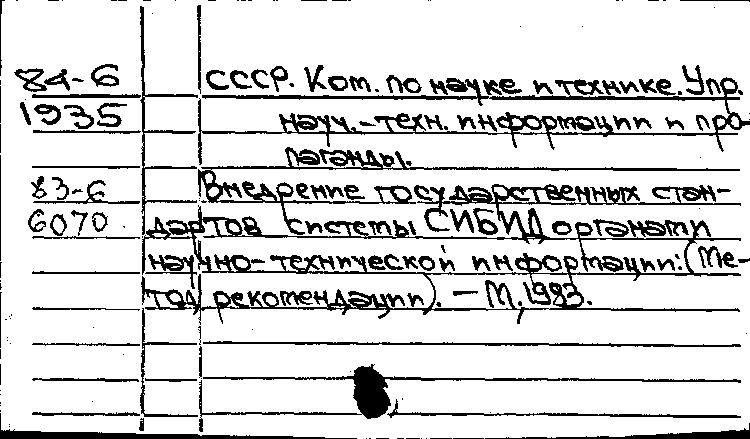 84-6 СССР. Ком. по науке и технике. Упр.
1935 науч.-техн. информации и про-
паганды.
83-6 Внедрение государственных стан-
6070 дартов системы СИБИД органами
научно-технической информации: (Ме-
тод. рекомендации). — М., 1983.